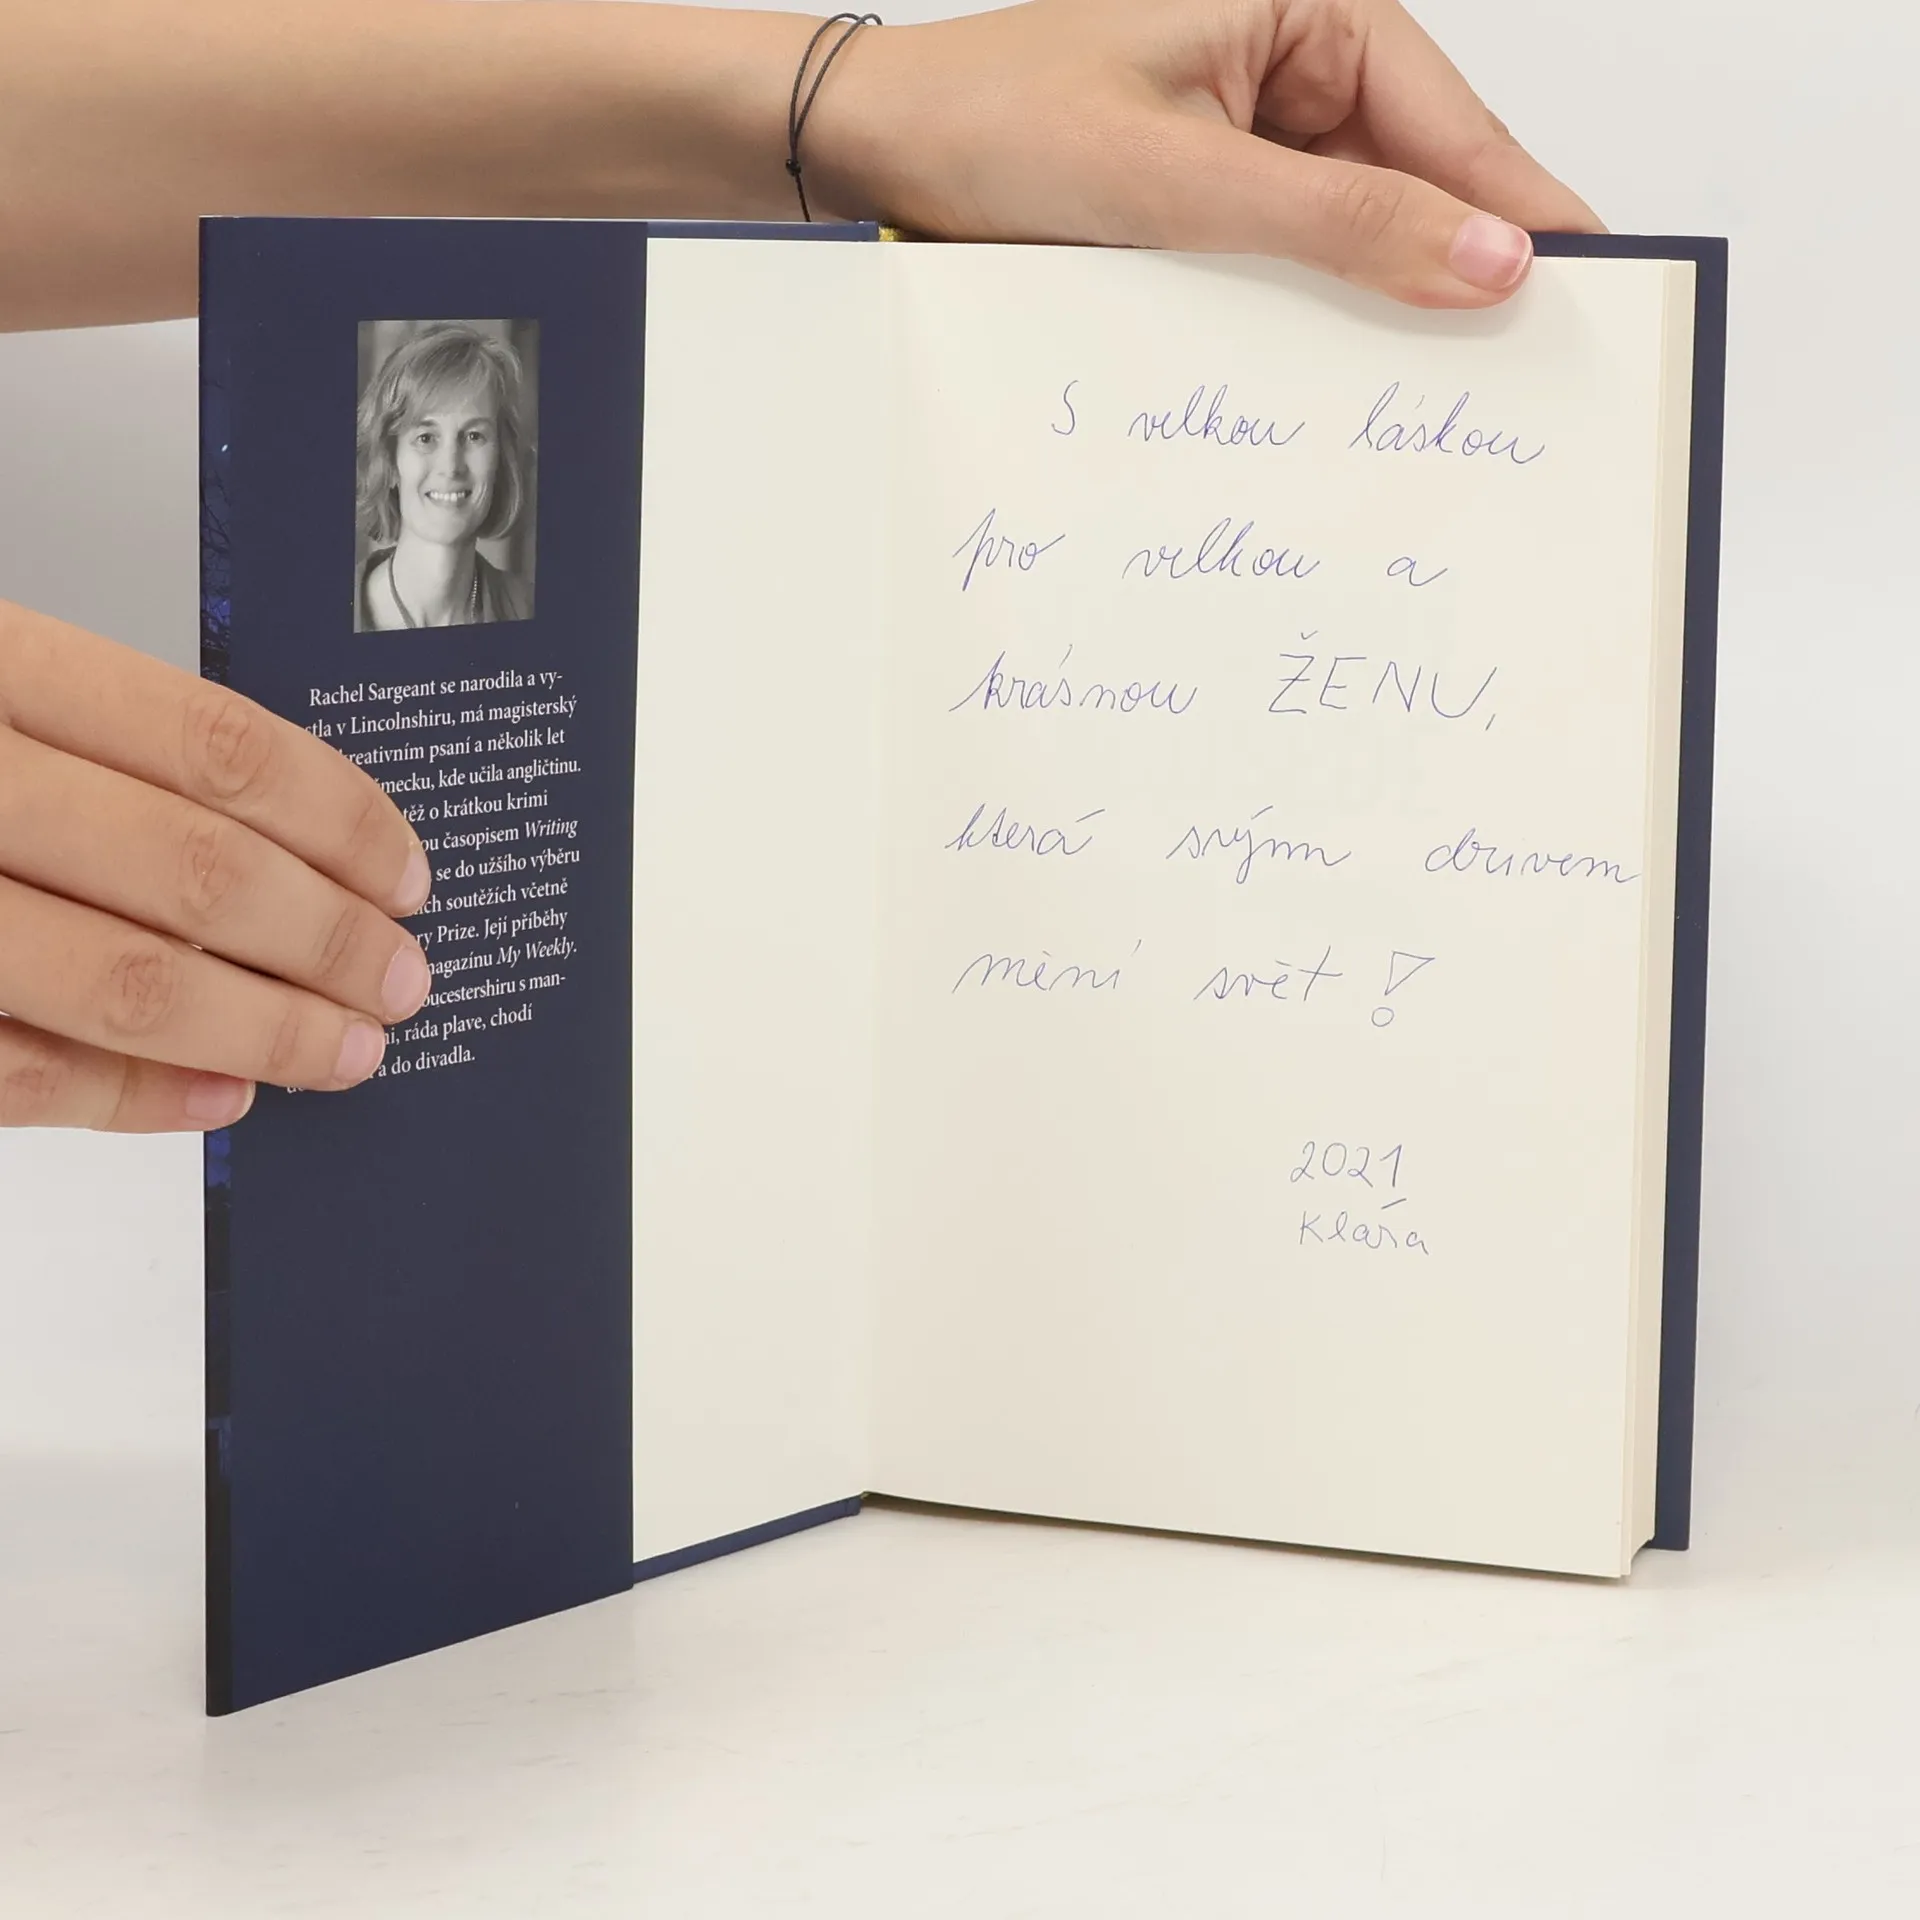 Rachel Sargeant se narodila a vy-
stla v Lincolnshiru, má magisterský
kreativním psaní a několik let
mecku, kde učila angličtinu.
těž o krátkou krimi
ou časopisem Writing
se do užšího výběru
ch soutěžích včetně
ry Prize. Její příběhy
magazínu My Weekly.
oucestershiru s man-
i, ráda plave, chodí
a do divadla.
S velkou láskou
pro velkou a
krásnou ŽENU,
která svým
mění svět!
2021
Klára